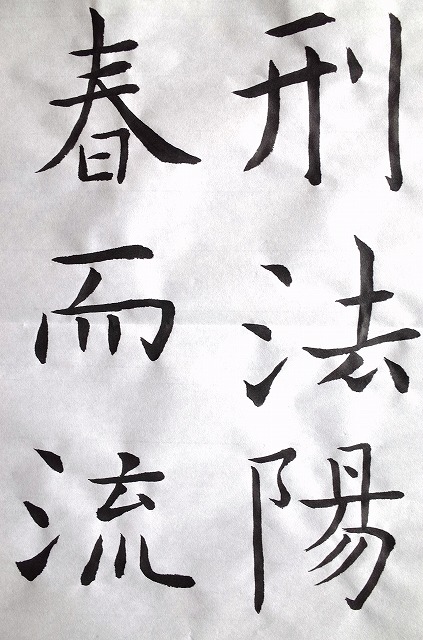 刑法陽
春而流